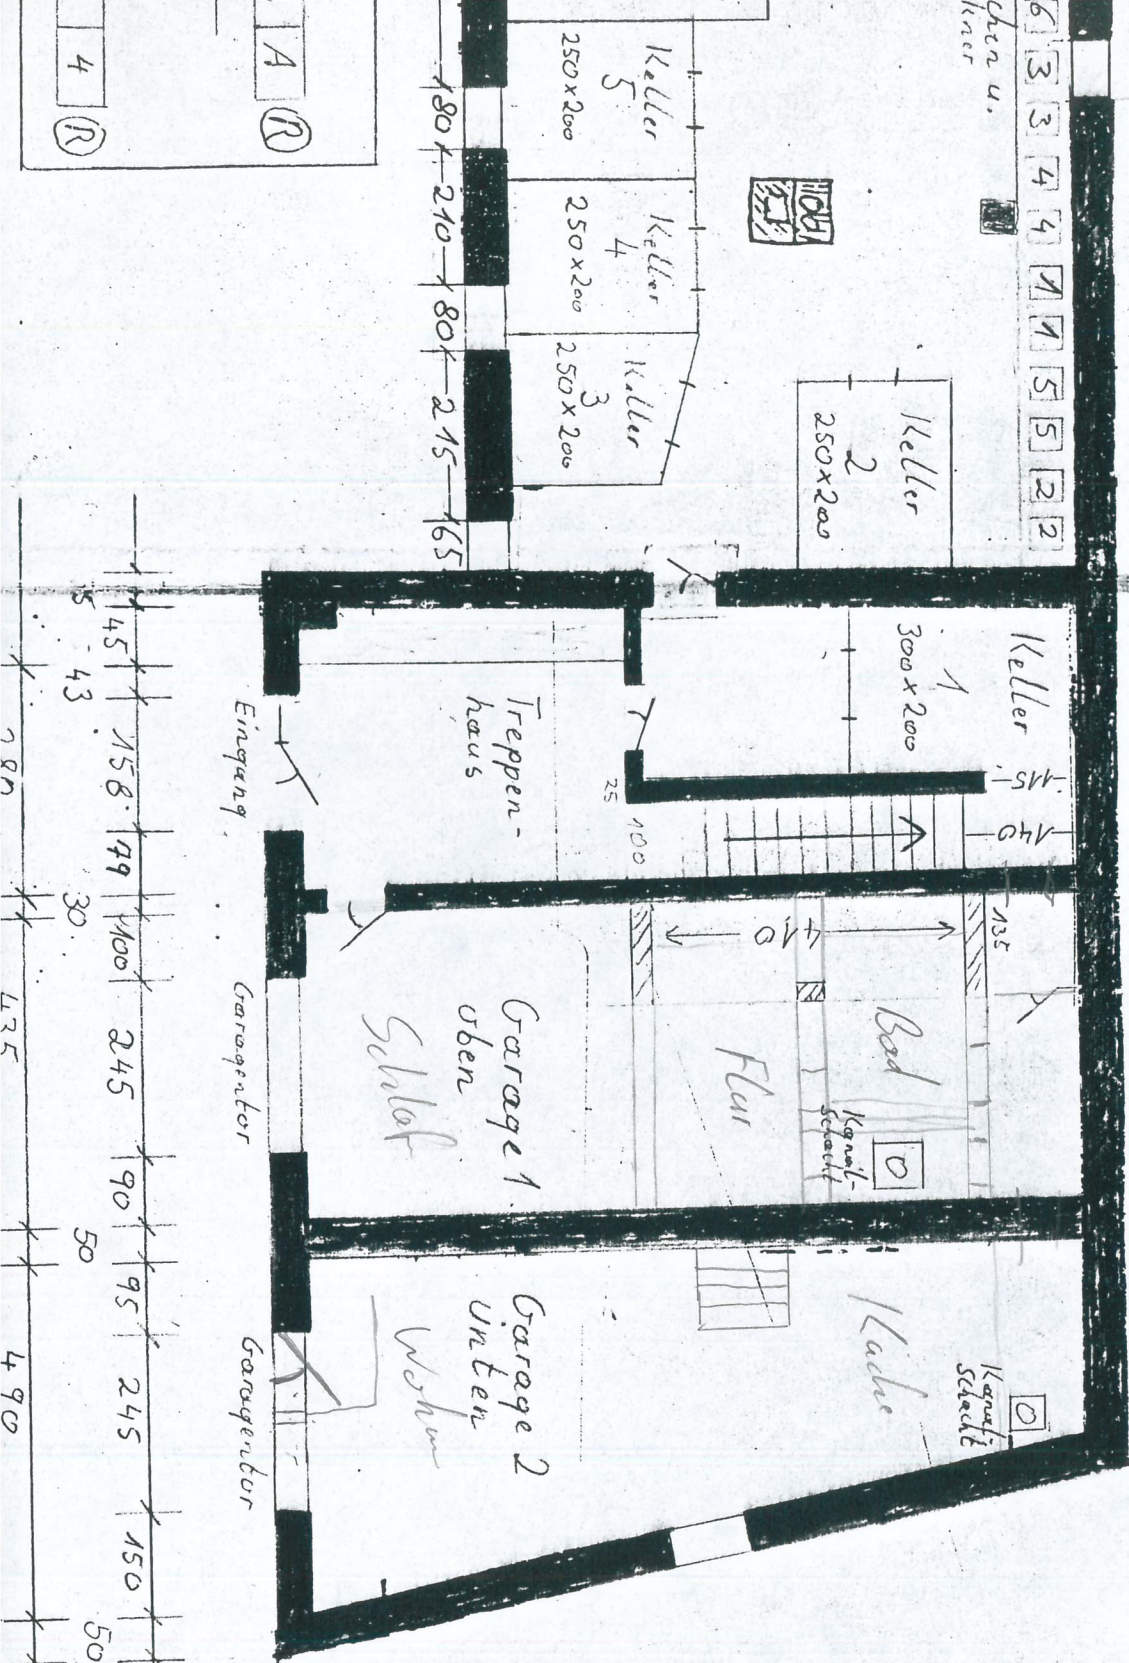 6 3 3 4 4 1 1 5 5 2 2
Keller
5
250x200
Keller
4
250x200
Keller
3
250x200
Keller
2
250x200
Keller
1
300x200
A R
4 R
180 210 180 215 165
115
140
25
100
135
110
Treppen-
haus
Eingang
Garage 1
oben
Schlaf
Flur
Bad
Kanal-
schacht
O
Garagentor
Garage 2
unten
Wohn
Küche
Kanal-
schacht
O
Garagentor
45 158 79 100 245 90 95 245 150
5 43 30 50 50
435 490